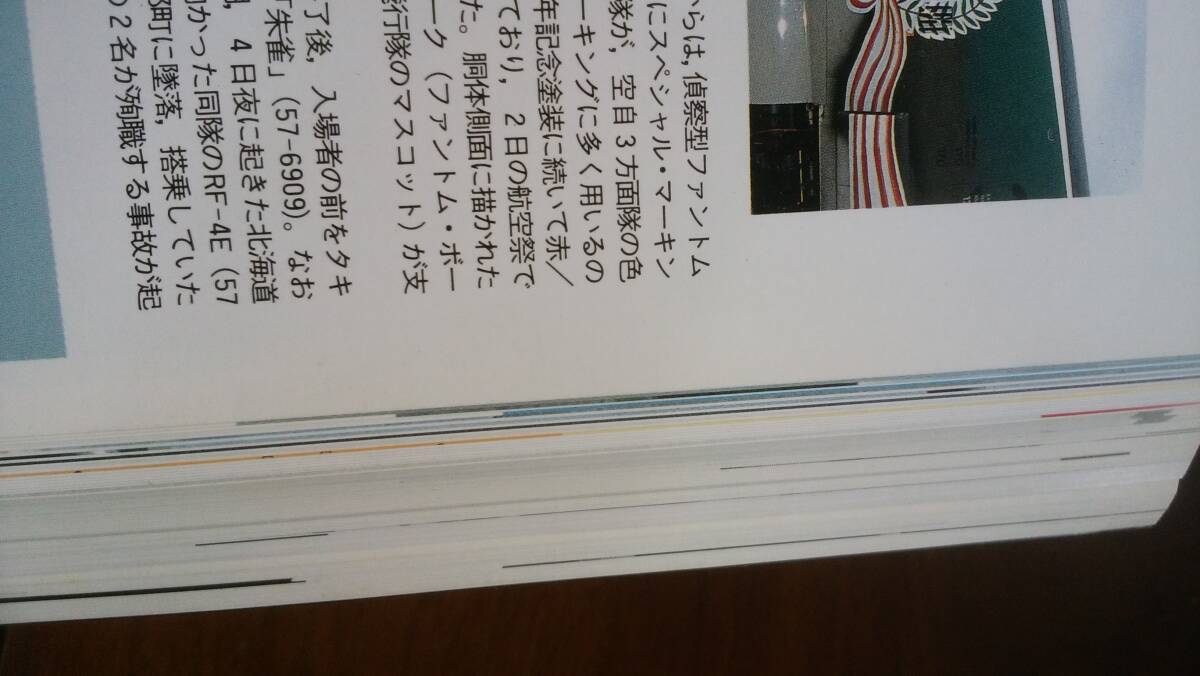 からは，偵察型ファントム
にスペシャル・マーキン
隊が，空自3方面隊の色
ーキングに多く用いるの
年記念塗装に続いて赤／
ており，2日の航空祭で
た。胴体側面に描かれた
ーク（ファントム・ボー
飛行隊のマスコット）が支
了後，入場者の前をタキ
「朱雀」（57-6909）。なお
，4日夜に起きた北海道
向かった同隊のRF-4E（57
部町に墜落，搭乗していた
の2名が殉職する事故が起